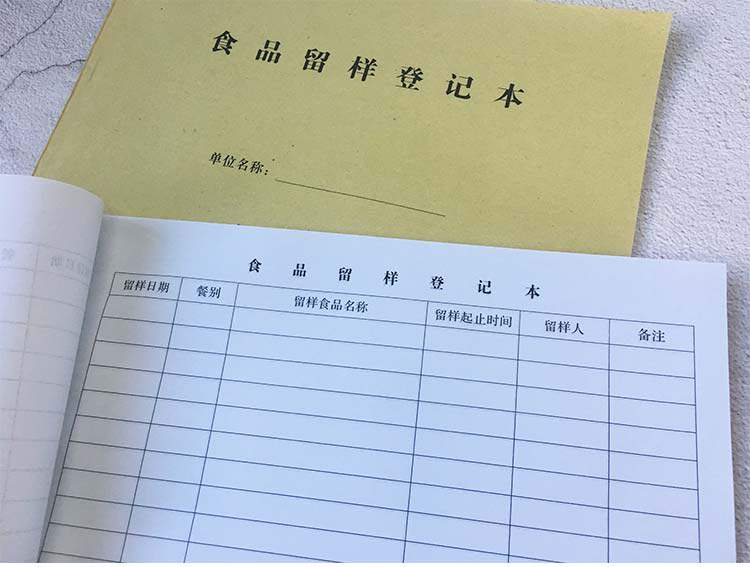 食品留样登记本
单位名称：
食品留样登记本
留样日期 餐别 留样食品名称 留样起止时间 留样人 备注